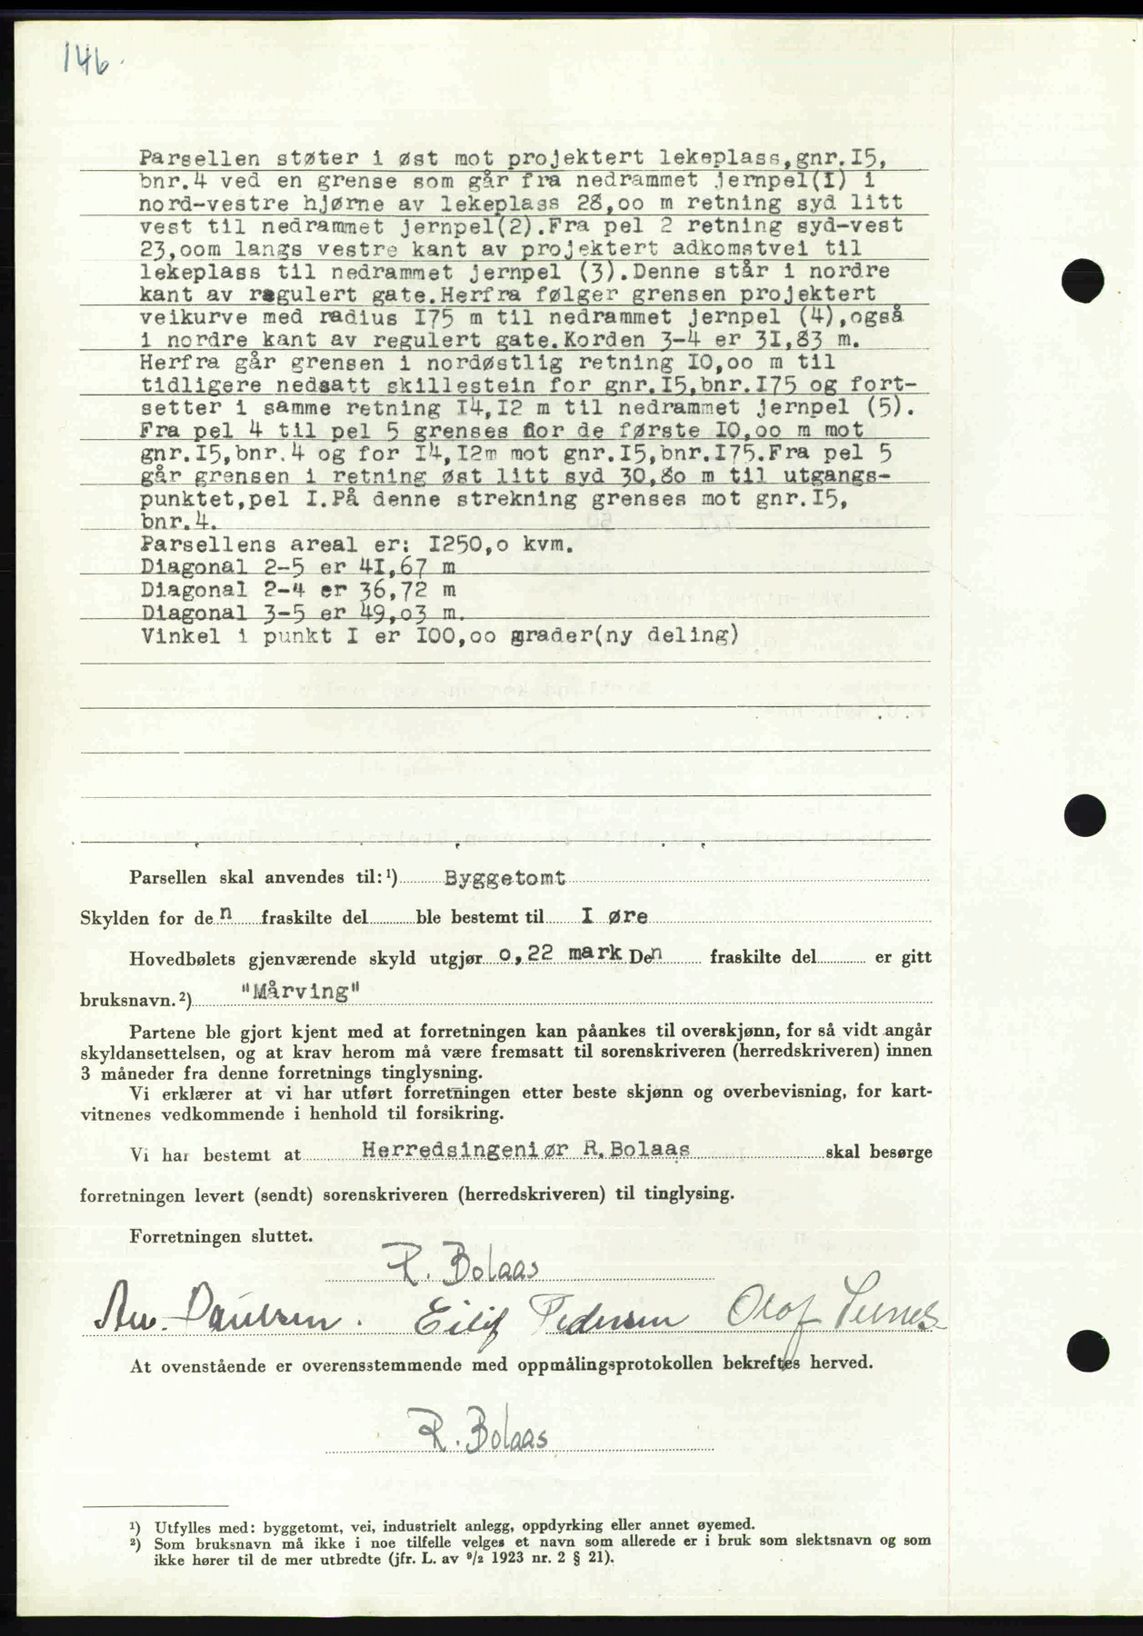 146.
Parsellen støter i øst mot projektert lekeplass,gnr.I5,
bnr.4 ved en grense som går fra nedrammet jernpel(I) i
nord-vestre hjørne av lekeplass 28,oo m retning syd litt
vest til nedrammet jernpel(2).Fra pel 2 retning syd-vest
23,oom langs vestre kant av projektert adkomstvei til
lekeplass til nedrammet jernpel (3).Denne står i nordre
kant av regulert gate.Herfra følger grensen projektert
veikurve med radius I75 m til nedrammet jernpel (4),også
i nordre kant av regulert gate.Korden 3-4 er 3I,83 m.
Herfra går grensen i nordøstlig retning IO,oo m til
tidligere nedsatt skillestein for gnr.I5,bnr.I75 og fort-
setter i samme retning I4,I2 m til nedrammet jernpel (5).
Fra pel 4 til pel 5 grenses for de første IO,oo m mot
gnr.I5,bnr.4 og for I4,I2m mot gnr.I5,bnr.I75.Fra pel 5
går grensen i retning øst litt syd 30,80 m til utgangs-
punktet,pel I.På denne strekning grenses mot gnr.I5,
bnr.4.
Parsellens areal er: I250,o kvm.
Diagonal 2-5 er 4I,67 m
Diagonal 2-4 er 36,72 m
Diagonal 3-5 er 49,o3 m.
Vinkel i punkt I er IOO,oo grader(ny deling)
Parsellen skal anvendes til:¹) Byggetomt
Skylden for den fraskilte del ble bestemt til I øre
Hovedbølets gjenværende skyld utgjør o,22 mark Den fraskilte del er gitt
bruksnavn.²) "Mårving"
Partene ble gjort kjent med at forretningen kan påankes til overskjønn, for så vidt angår
skyldansettelsen, og at krav herom må være fremsatt til sorenskriveren (herredskriveren) innen
3 måneder fra denne forretnings tinglysning.
Vi erklærer at vi har utført forretningen etter beste skjønn og overbevisning, for kart-
vitnenes vedkommende i henhold til forsikring.
Vi har bestemt at Herredsingeniør R.Bolaas skal besørge
forretningen levert (sendt) sorenskriveren (herredskriveren) til tinglysing.
Forretningen sluttet.
R. Bolaas
Paulsen. Eilif Pedersen Olof
At ovenstående er overensstemmende med oppmålingsprotokollen bekreftes herved.
R. Bolaas
¹) Utfylles med: byggetomt, vei, industrielt anlegg, oppdyrking eller annet øyemed.
²) Som bruksnavn må ikke i noe tilfelle velges et navn som allerede er i bruk som slektsnavn og som
ikke hører til de mer utbredte (jfr. L. av ⁹/₂ 1923 nr. 2 § 21).